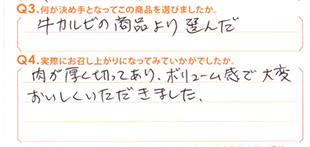 Q3.何が決め手となってこの商品を選びましたか。
牛カルビの商品より選んだ
Q4.実際にお召し上がりになってみていかがでしたか。
肉が厚く切ってあり、ボリューム感で大変
おいしくいただきました、